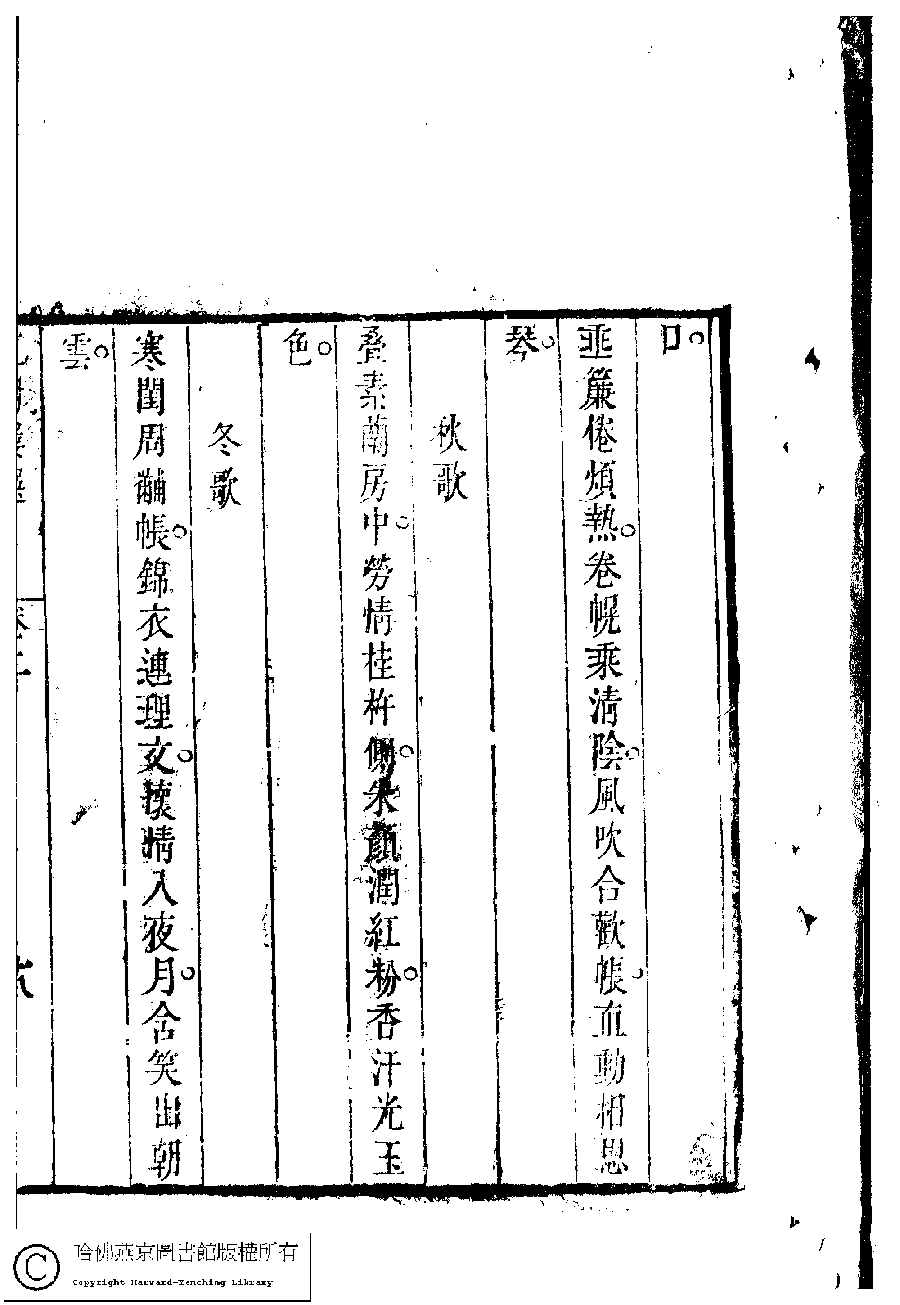 口。
垂簾倦煩熱。卷幌乘清陰。風吹合歡帳。直動相思
琴。
秋歌
疊素蘭房中。勞情桂杵側。朱顏潤紅粉。香汗光玉
色。
冬歌
寒閨周黼帳。錦衣連理文。懷情入夜月。含笑出朝
雲。
卷二
六
哈佛燕京圖書館版權所有
Copyright Harvard-Yenching Library